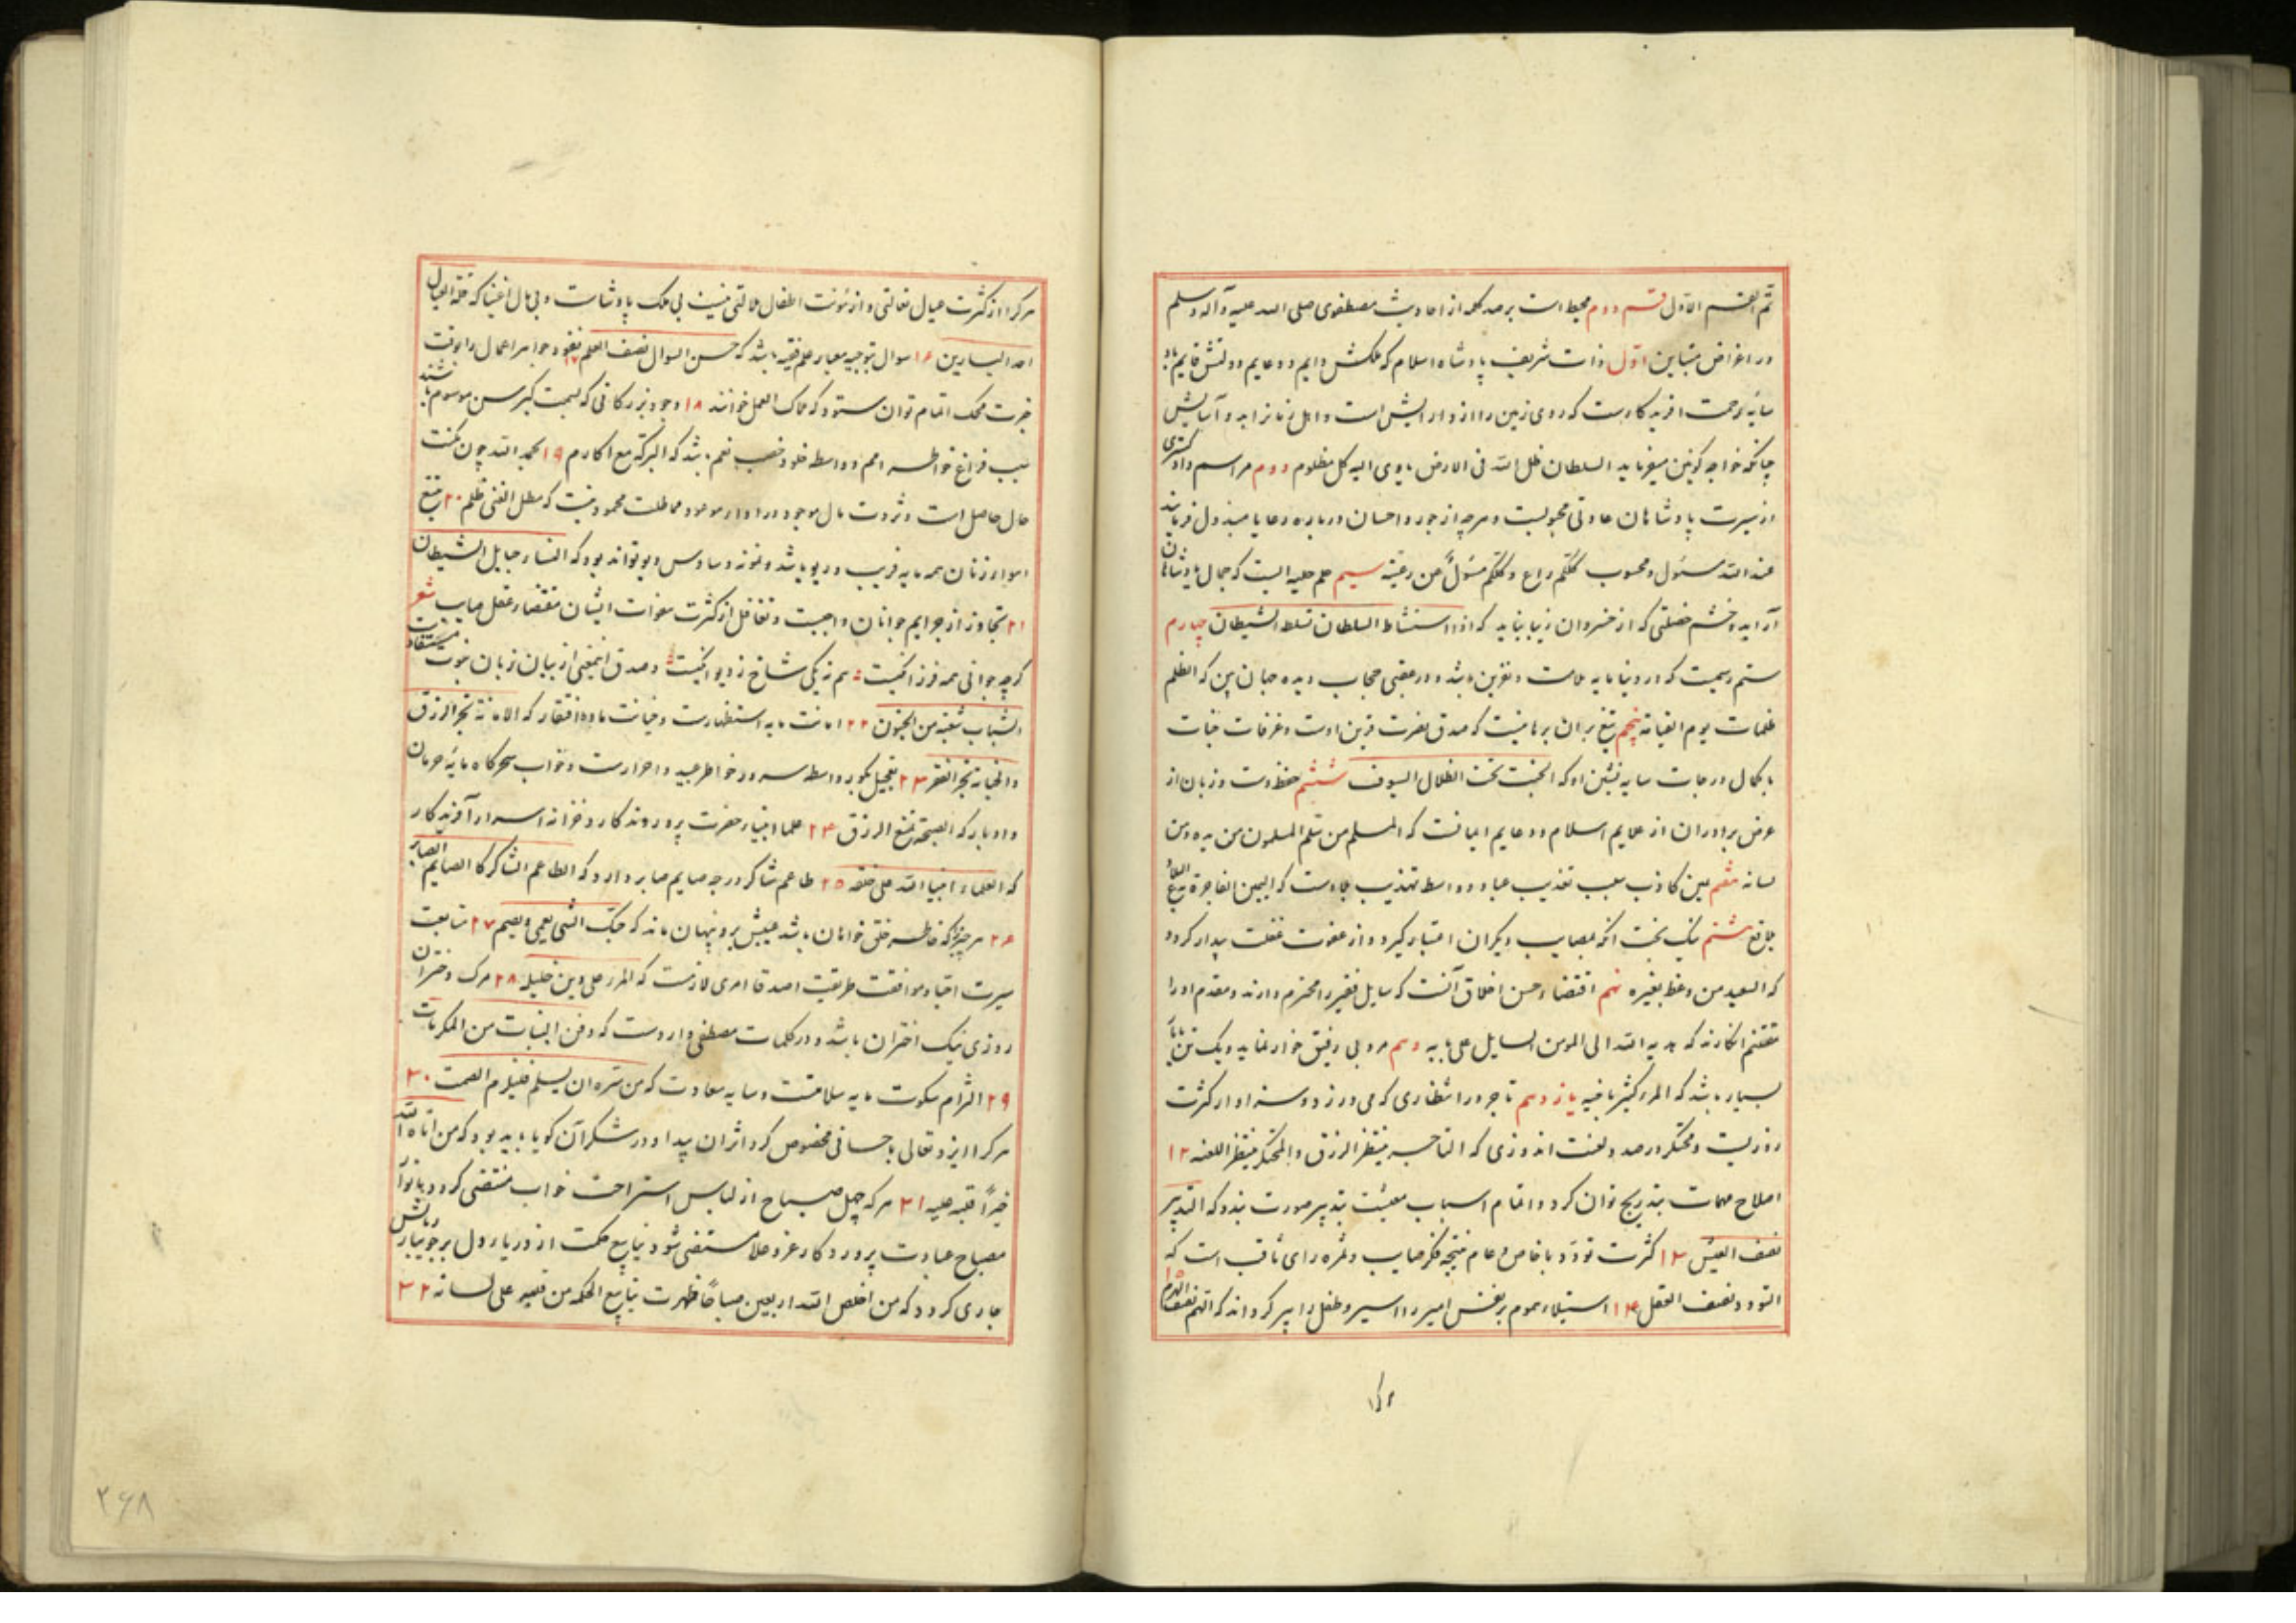 تم القسم الاول قسم دوم محیط است بر صد کلمه از احادیث مصطفوی صلی الله علیه وآله وسلم
در اغراض متباین اول ذات شریف پادشاه اسلام که ملکش دایم و دعایم دولتش قایم باد
سایه رحمت افریدکارست که روی زمین را ازو ارایش است و اهل زمانرا بدو آسایش
چنانکه خواجه کونین میفرماید السلطان ظل الله فی الارض یاوی الیه کل مظلوم دوم مراسم داد کستری
از سیرت پادشاهان عادتی محبوبست و هرچه از جور و احسان درباره رعایا مبذول فرمایند
عند الله مسئول و محسوب کلکم راع و کلکم مسئول عن رعیته سیم حلم حلیه ایست که جمال پادشاهان
آراید و خشم خصلتی که از خسروان زیبا نیاید که اذا استشاط السلطان تسلط الشیطان چهارم
ستم رسمیست که در دنیا مایه ملامت و نفرین باشد و در عقبی حجاب دیده جهان بین که الظلم
ظلمات یوم القیامة پنجم تیغ بران برهانیست که صدق نصرت قرین اوست و غرفات جنات
با کمال درجات سایه نشین او که الجنت تحت الظلال السیوف ششم حفظ دست و زبان از
عرض برادران از علایم اسلام و دعایم ایمانست که المسلم من سلم المسلمون من یده و من
لسانه هفتم یمین کاذب سبب تعذیب عباد و واسطه تهذیب بلادست که الیمین الفاجرة تدع الدیار
بلاقع هشتم نیک بخت انکه بمصایب دیکران اعتبار کیرد و از عفوت غفلت بیدار کردد
که السعید من وعظ بغیره نهم اقتضاء حسن اخلاق آنست که سایل فقیر را محترم دارند و مقدم او را
مغتنم انکارند که هدیه الله الی المومن السایل علی بابه دهم مرد بی رفیق خوار نماید و یک تن با یار
بسیار باشد که المرء کثیر باخیه یازدهم تاجر در انتظاری که می ورزد و سنه او از کثرت
روزیست و محتکر در صدد لعنت اندوزی که التاجر ینتظر الرزق والمحتکر ینتظر اللعنه ۱۲
اصلاح مهمات بتدریج توان کرد و اتمام اسباب معیشت بتدبیر صورت بندد که التدبیر
نصف العیش ۱۳ کثرت تودد با خاص و عام نتیجه فکر صایب و ثمره رای ثاقب است که
التودد نصف العقل ۱۴ استیلاء هموم بر نفس امیر را اسیر و طفل را پیر کرداند که الهم نصف الهرم ۱۵
هرکرا
هرکرا از کثرت عیال ثقالتی و از مونت اطفال ملالتی نیست بی ملک پادشاست و بی مال اغنیا که قلة العیال
احد الیسارین ۱۶ سوال بتوجیه معیار علم فقیه باشد که حسن السوال نصف العلم ۱۷ نقود جواهر اعمال را بوقت
خبرت محک اتمام توان ستود که ملاک العمل خوانند ۱۸ وجود بزرکانی که بسمت کبر سن موسوم باشند
سبب فراغ خواطر امم و واسطه خلود خصب نعم باشد که البرکة مع اکارم ۱۹ بحمد الله چون مکنت
حال حاصل است و ثروت مال موجود در اداء موعود مماطلت محمود نیست که مطل الغنی ظلم ۲۰ تتبع
اهواء زنان همه مایه فریب و ریو باشد و نمونه وساوس دیو تواند بود که النساء حبایل الشیطان
۲۱ تجاوز از جرایم جوانان واجبست و تغافل از کثرت هفوات ایشان مقتضاء عقل صایب شعر
کرچه جوانی همه فرزانکیست هم زیکی شاخ ز دیوانکیست و صدق اینمعنی از بیان زبان نبوت مستفاد
الشباب شعبة من الجنون ۲۲ امانت مایه استظهارست و خیانت ماده افتقار که الامانة تجر الرزق
والخیانة تجر الفقر ۲۳ تعجیل بکور واسطه سرور خواطر عبید و احرارست و خواب سحرکاه مایه حرمان
و ادبار که الصبحة تمنع الرزق ۲۴ علما انبیاء حضرت پروردکار و خزانه اسرار آفریدکار
که العلماء انبیا الله علی خلقه ۲۵ طاعم شاکر درجه صایم صابر دارد که الطاعم الشاکر کا الصایم الصابر
۲۶ هر چیزکه خاطر خلق خواهان باشد عیبش برو پنهان ماند که حبک الشی یعمی ویصم ۲۷ متابعت
سیرت احباء و موافقت طریقت اصدقا امری لازمست که المرء علی دین خلیله ۲۸ مرک دختران
روزی نیک اختران باشد و در کلمات مصطفی واردست که دفن البنات من المکرمات
۲۹ التزام سکوت مایه سلامتست و سایه سعادت که من سره ان یسلم فلیلزم الصمت ۳۰
هرکرا ایزد تعالی باحسانی مخصوص کرد اثر ان پیدا و در شکر آن کویا باید بود که من اتاه الله
خیراً فلیر علیه ۳۱ هرکه چهل صباح از لباس استراحت خواب منقضی کردد و بانوار
مصباح عبادت پروردکار عز و علا مستضی شود ینابیع حکمت از دریاء دل بر جویبار زبانش
جاری کردد که من اخلص الله اربعین صباحاً ظهرت ینابیع الحکمه من قلبه علی لسانه ۳۲
۲۶۸